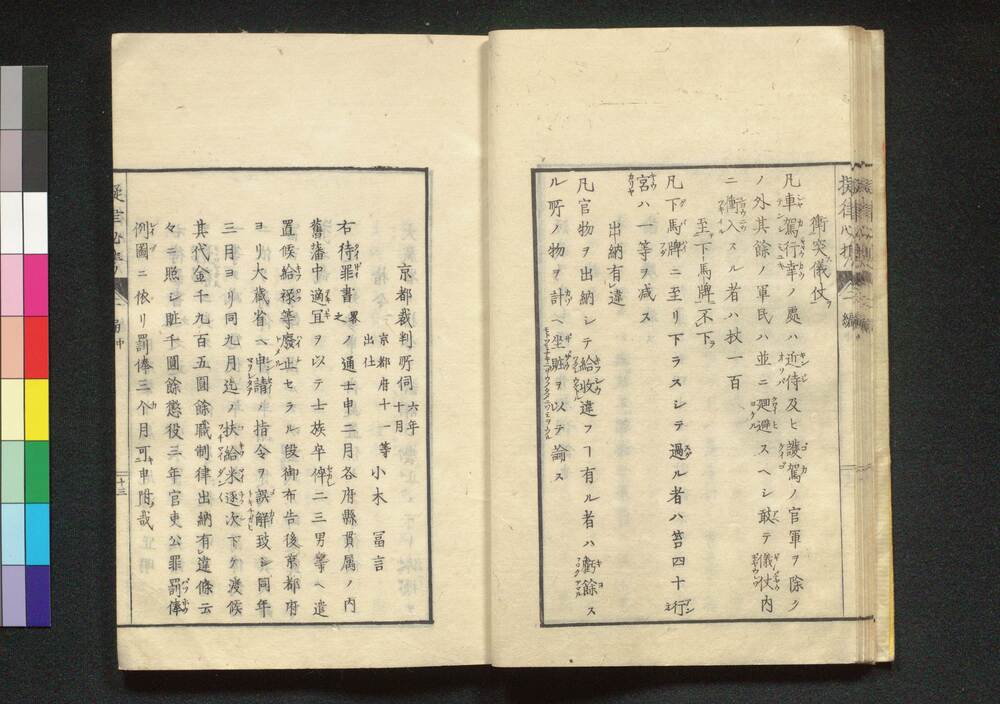 衝突儀仗
凡車駕行幸ノ處ハ近侍及ヒ護駕ノ官軍ヲ除ク
ノ外其餘ノ軍民ハ並ニ廻避スヘシ敢テ儀仗内
ニ衝入スル者ハ杖一百
至下馬牌不下
凡下馬牌ニ至リ下ラスシテ過ル者ハ笞四十行
宮ハ一等ヲ減ス
出納有違
凡官物ヲ出納シテ給收違フヿ有ル者ハ虧餘ス
ル所ノ物ヲ計ヘ坐贓ヲ以テ論ス
京都裁判所伺 六年十月
京都府十一等出仕 小木 冨言
右待罪書畧之ノ通士申二月各府縣貫属ノ内
舊藩中適冝ヲ以テ士族卒倅二三男等ヘ遣
置候給禄等廢止セラル段御布告後京都府
ヨリ大蔵省ヘ申請ノ指令ヲ誤解致シ同年
三月ヨリ同九月迄ノ扶給米逐次下ケ渡候
其代金千九百五圓餘職制律出納有違條云
々ニ照シ贓千圓餘懲役三年官吏公罪罰俸
例圖ニ依リ罰俸三个月可申附哉